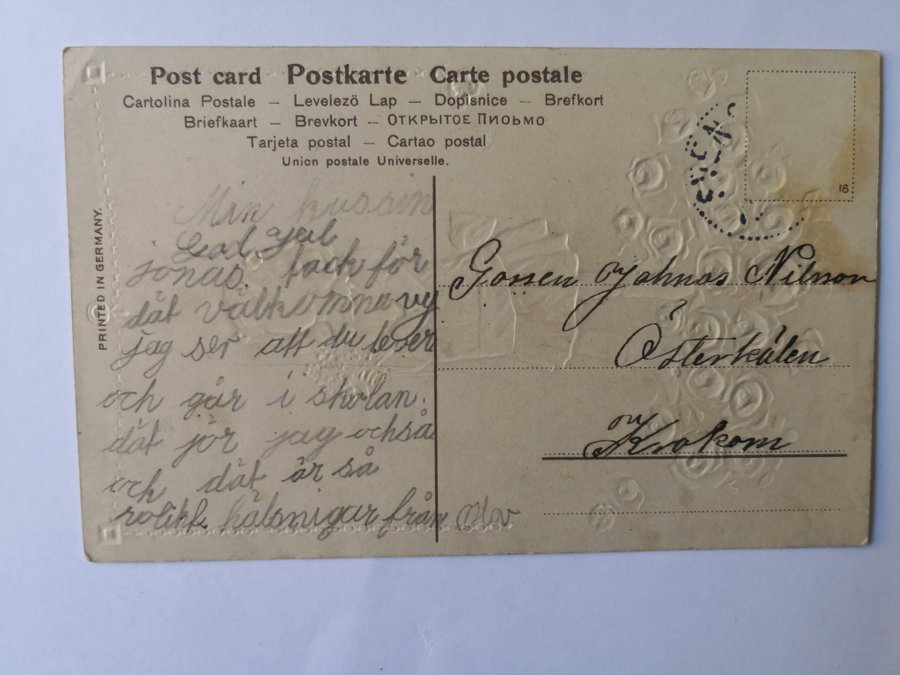 Post card Postkarte Carte postale
Cartolina Postale – Levelezö Lap – Dopisnice – Brefkort
Briefkaart – Brevkort – ОТКРЫТОЕ ПИОЬМО
Tarjeta postal – Cartao postal
Union postale Universelle.
PRINTED IN GERMANY.
18
Min kussin
God jul
jonas. tack för
dät välkomne vy
jag ser att du lever
och går i skolan.
dät jör jag ochså
och dät är så
rolikt hälsnigar från
Gossen Johnas Nilsson
Österkälen
Krokom